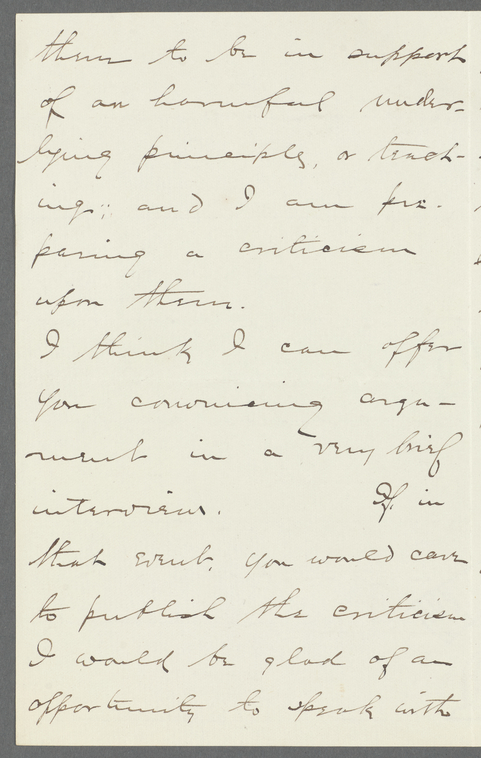 them to be in support
of an harmful under-
lying principle, or teach-
ing; and I am pre-
paring a criticism
upon them.
I think I can offer
you convincing argu-
ment in a very brief
interview. If, in
that event, you would care
to publish the criticism
I would be glad of an
opportunity to speak with